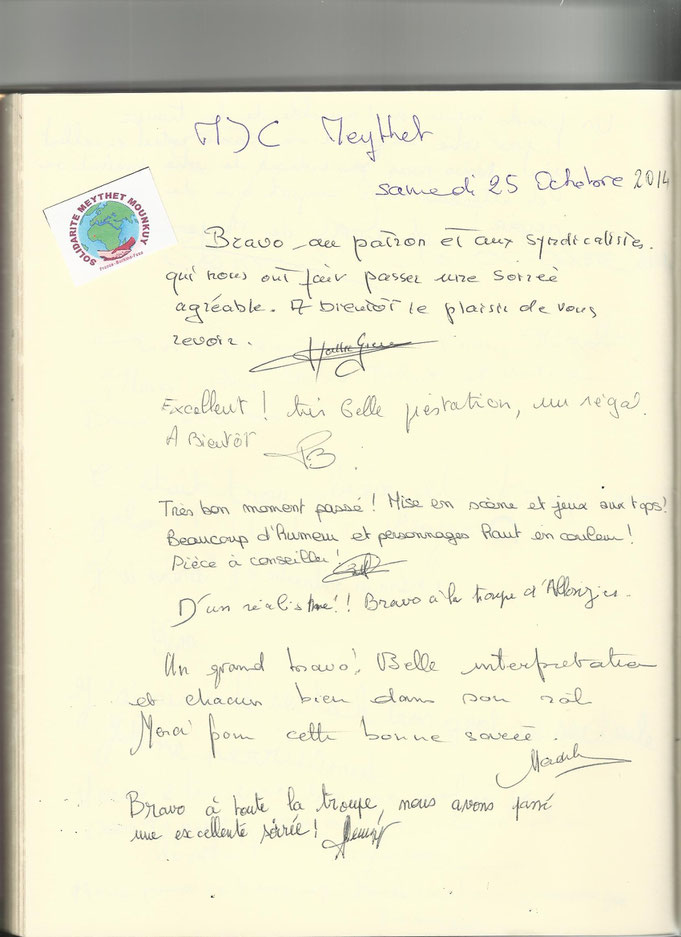 MJC Meythet
samedi 25 Octobre 2014
SOLIDARITE MEYTHET MOUNKUY
France-Burkina-Faso
Bravo au patron et aux syndicalistes.
qui nous ont fait passer une soirée
agréable. A bientôt le plaisir de vous
revoir.
Excellent ! très belle préstation, un régal.
A Bientôt PB
Très bon moment passé ! Mise en scène et jeux aux tops !
Beaucoup d'Humeur et personnages Haut en couleur !
Pièce à conseiller !
D'un réalisme !! Bravo à la troupe d'Allonzier.
Un grand bravo ! Belle interpretation
et chacun bien dans son rôl
Merci pour cette bonne soirée.
Bravo à toute la troupe, nous avons passé
une excellente soirée !